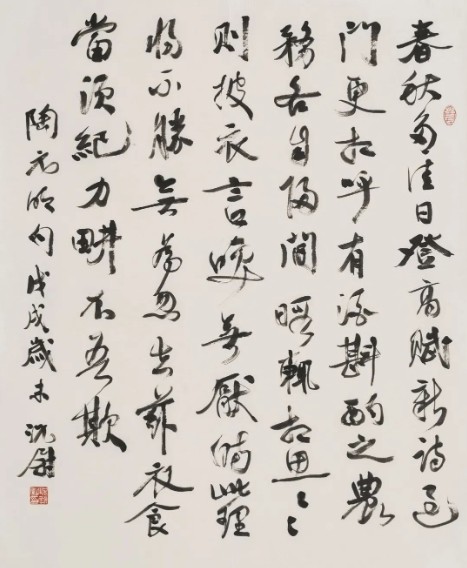 春秋多佳日登高賦新詩過
門更相呼有酒斟酌之農
務各自歸間暇輒相思〻〻
則披衣言咲無厭時此理
將不勝無為忽去茲衣食
當須紀力畊不吾欺
陶元明句戊戌歲末沈